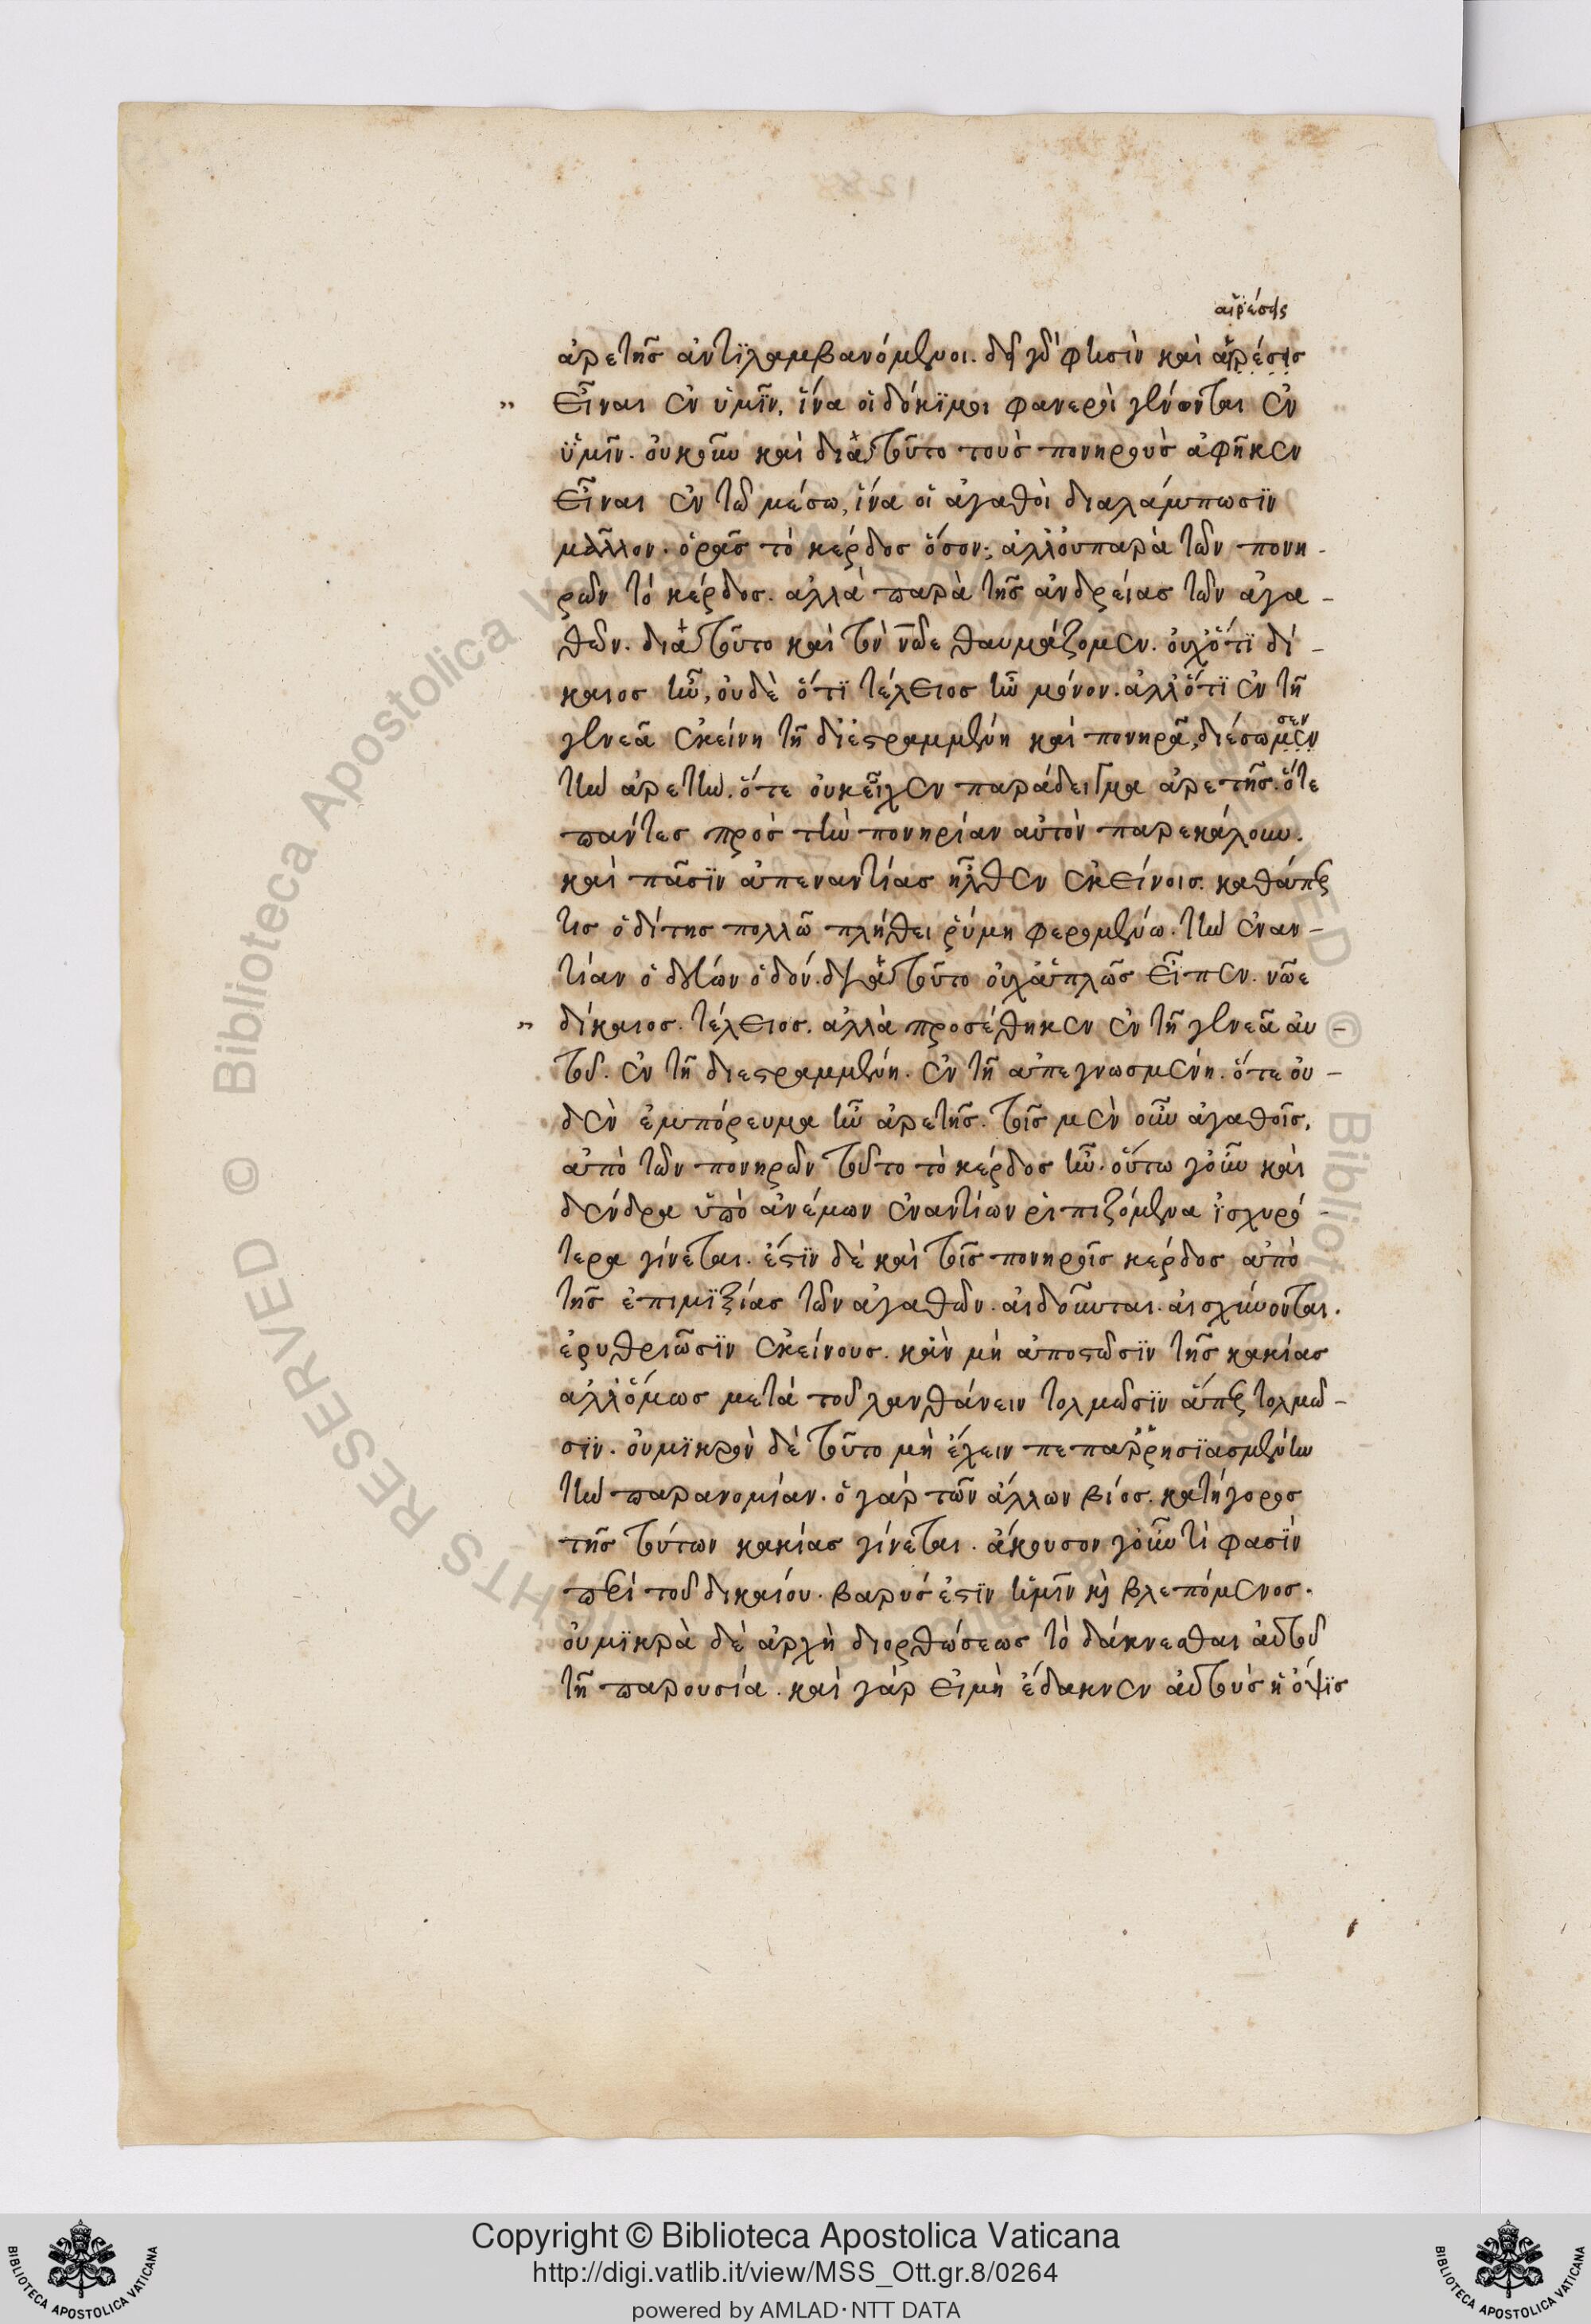 αἱρέσεις
ἀρετῆς ἀντϊλαμβανόμενοι. δεῖ γὰρ φησὶν καὶ αἱρέσεις
„ εἶναι ἐν ὑμῖν, ἵνα οἱ δόκϊμοι φανεροὶ γένωνται ἐν
ὑμῖν. οὐκοῦν καὶ διὰ τοῦτο τοὺς πονηροὺς ἀφῆκεν
εἶναι ἐν τῶ μέσω, ἵνα οἱ ἀγαθοὶ διαλάμπωσϊν
μᾶλλον. ὁρᾶς τὸ κέρδος ὅσον; ἀλλ' οὐ παρὰ τῶν πονη-
ρῶν τὸ κέρδος. ἀλλὰ παρὰ τῆς ἀνδρείας τῶν ἀγα-
θῶν. διὰ τοῦτο καὶ τὸν νῶε θαυμάζομεν. οὐχ ὅτϊ δί-
καιος ἦν, οὐδὲ ὅτϊ τέλειος ἦν μόνον. ἀλλ' ὅτϊ ἐν τῆ
γενεᾶ ἐκείνη τῆ διεστραμμένη καὶ πονηρᾶ, διέσωμεν
σεν
τὴν ἀρετὴν. ὅτε οὐκ εἶχεν παράδειγμα ἀρετῆς. ὅτε
πάντες πρὸς τὴν πονηρίαν αὐτὸν παρεκάλουν.
καὶ πᾶσϊν ἀπεναντίας ἦλθεν ἐκείνοις. καθάπερ
τις ὁδίτης πολλῶ πλήθει ῥύμη φερομένω. τὴν ἐναν-
τίαν ὁδεύων ὁδόν. διὰ τοῦτο οὐχ ἁπλῶς εἶπεν. νῶε
„ δίκαιος. τέλειος. ἀλλὰ προσέθηκεν ἐν τῆ γενεᾶ αὐ-
τοῦ. ἐν τῆ διεστραμμένη. ἐν τῆ ἀπεγνωσμένη. ὅτε οὐ-
δὲν ἐμπόρευμα ἦν ἀρετῆς. τοῖς μὲν οὖν ἀγαθοῖς,
ἀπὸ τῶν πονηρῶν τοῦτο τὸ κέρδος ἦν. οὕτω γοῦν καὶ
δένδρα ὑπὸ ἀνέμων ἐναντίων ῥιπιζόμενα ἰσχυρό-
τερα γίνεται. ἔστϊν δὲ καὶ τοῖς πονηροῖς κέρδος ἀπὸ
τῆς ἐπιμϊξίας τῶν ἀγαθῶν. αἰδοῦνται. αἰσχύνονται.
ἐρυθριῶσϊν ἐκείνους. κἂν μὴ ἀποστῶσϊν τῆς κακίας
ἀλλ' ὅμως μετὰ τοῦ λανθάνειν τολμῶσϊν ἅπερ τολμῶ-
σϊν. οὐ μϊκρὸν δὲ τοῦτο μὴ ἔχειν πεπαῤῥησϊασμένην
τὴν παρανομίαν. ὁ γὰρ τῶν ἄλλων βίος. κατήγορος
τῆς τούτων κακίας γίνεται. ἄκουσον γοῦν τί φασϊν
περὶ τοῦ δικαίου. βαρύς ἐστϊν ἡμῖν καὶ βλεπόμενος.
οὐ μϊκρὰ δὲ ἀρχὴ διορθώσεως τὸ δάκνεσθαι αὐτοῦ
τῆ παρουσία. καὶ γὰρ εἰ μὴ ἔδακνεν αὐτοὺς ἡ ὄψϊς
Biblioteca Apostolica Vaticana © Biblioteca
RIGHTS RESERVED
Copyright © Biblioteca Apostolica Vaticana
http://digi.vatlib.it/view/MSS_Ott.gr.8/0264
powered by AMLAD·NTT DATA
BIBLIOTECA APOSTOLICA VATICANA
BIBLIOTECA APOSTOLICA VATICANA